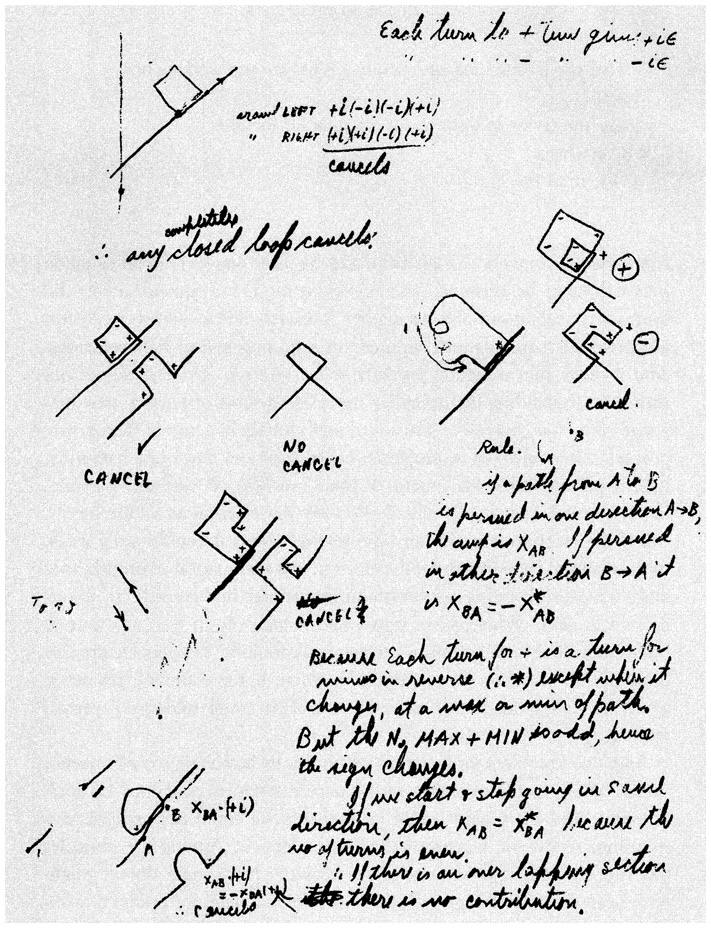 Each turn to + time gives +iε
" " " - " " -iε
around LEFT +i(-i)(-i)(+i)
" RIGHT (+i)(+i)(-i)(+i)
cancels
completely
∴ any closed loop cancels.
+
-
cancel
CANCEL
NO
CANCEL
B
Rule. A
if a path from A to B
is persued in one direction A→B,
the amp is X_AB. If persued
in other direction B→A it
is X_BA = -X*_AB
CANCELS
Because Each turn for + is a turn for
minus in reverse (∴ *) except when it
changes, at a max or min of path.
But the No MAX + MIN is odd, hence
the sign changes.
If we start & stop going in same
direction, then X_AB = X*_BA because the
no of turns is even.
∴ If there is an over lapping section
there is no contribution.
B X_BA·(+i)
A
X_AB·(+i)
= -X_BA(+i)
∴ cancels